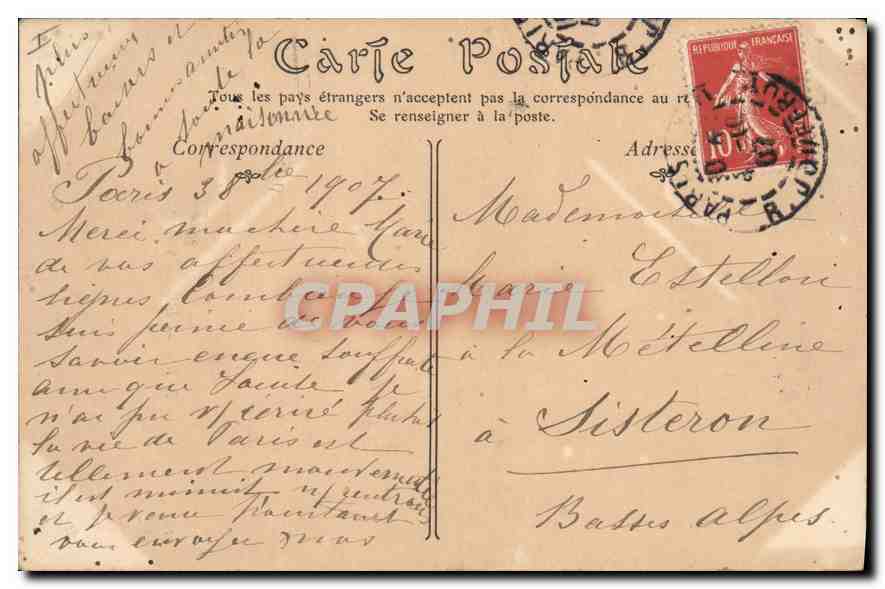 Carte Postale
Tous les pays étrangers n'acceptent pas la correspondance au
Se renseigner à la poste.
Correspondance
Adresse
REPUBLIQUE FRANÇAISE
10
PARIS
R. JOUFFROY
CRAPHIL
Paris 3 8bre 1907
Merci ma chère Marie
de vos affectueuses
lignes Combien je
suis peinée de vous
savoir encore souffrante
ainsi que Je
n'ai pu v/ écrire plutot
la vie de Paris est
tellement mouvementée
il est minuit n/ rentrons
et je veux pourtant
vous envoyer nos
plus
affectueux
baisers et
bonne amitiés
à toute la
maisonnée
Mademoiselle
Marie Estellon
à la Mételline
à Sisteron
Basses Alpes.